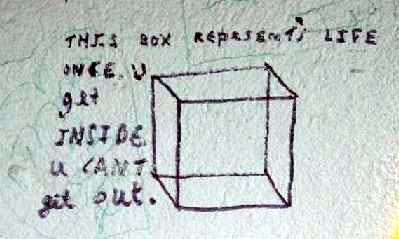 THIS BOX REPRSENT'S LIFE
ONCE U
get
INSIDE
U CAN'T
get out.